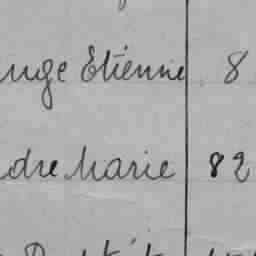 uge Etienne 8
dre Marie 82